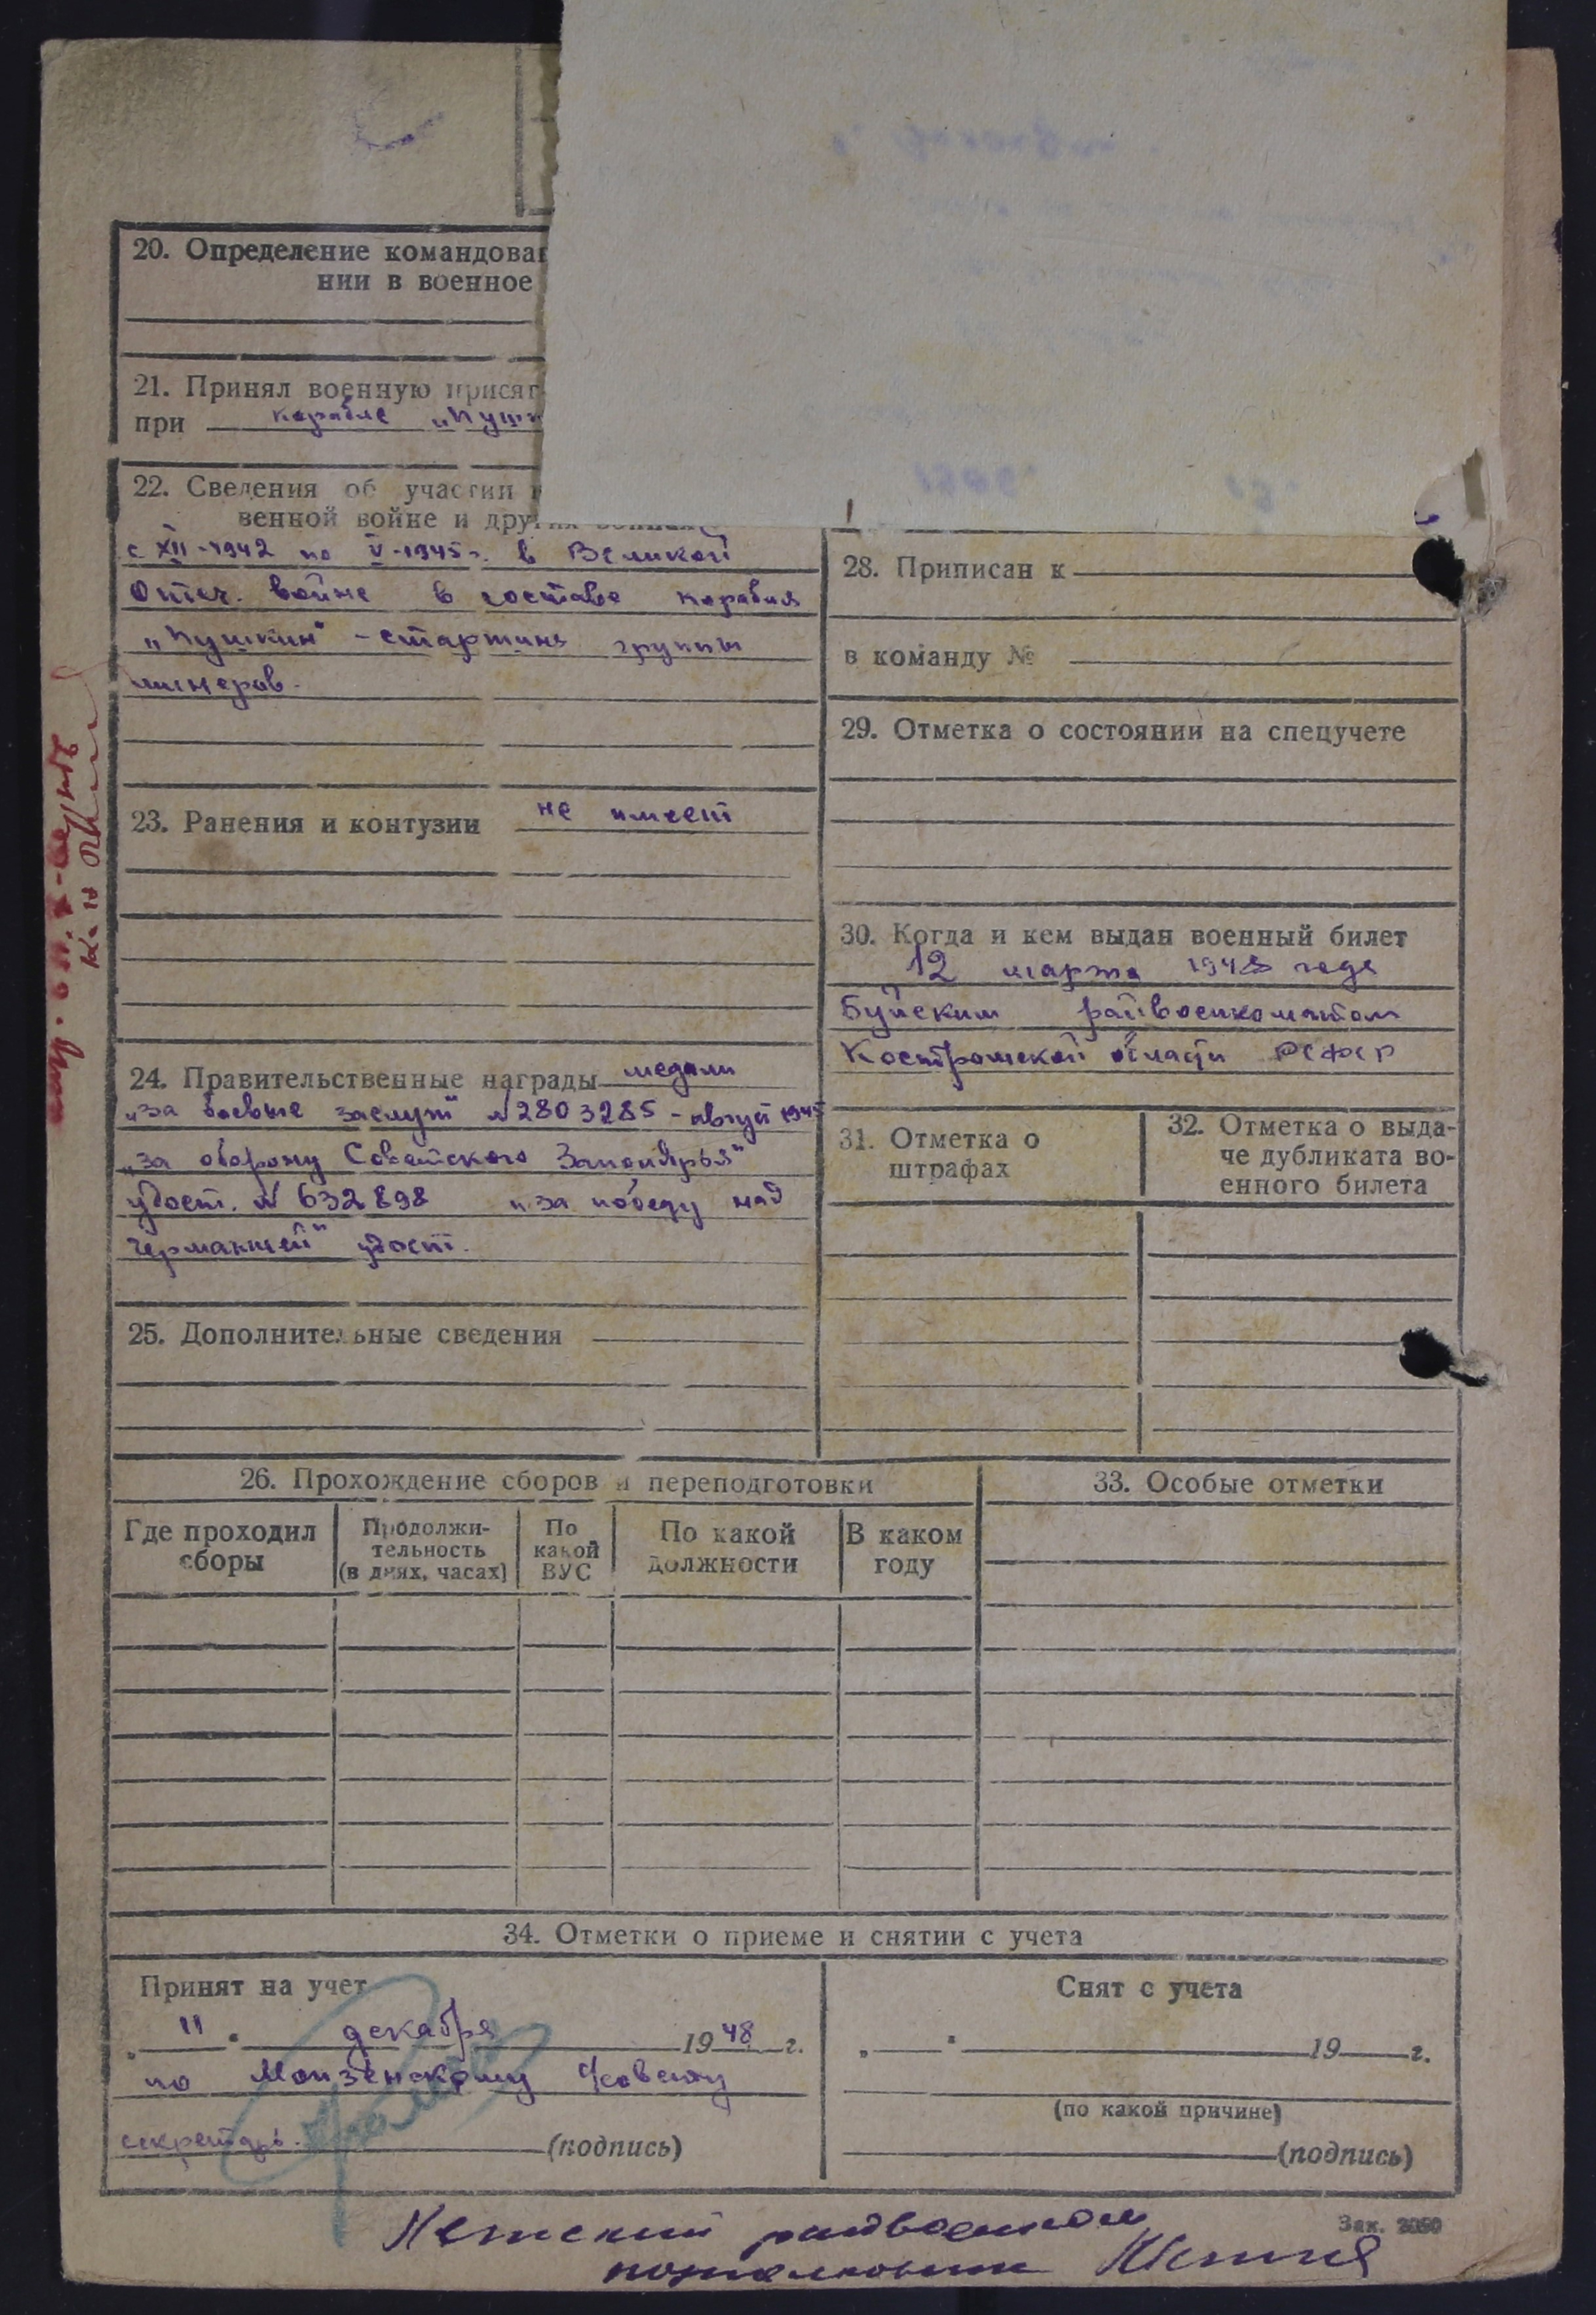 20. Определение командован
нии в военное
21. Принял военную присяг
при корабле „Пушк
22. Сведения об участии в
венной войне и других войнах
с XII-1942 по V-1945г. в Великой
Отеч. войне в составе корабля
„Пушкин" - старшина группы
минеров.
23. Ранения и контузии не имеет
24. Правительственные награды медали
„за боевые заслуги" №2803285 - август 1945
„за оборону Советского Заполярья"
удост. № 632898 „за победу над
Германией" удост.
25. Дополнительные сведения
28. Приписан к
в команду №
29. Отметка о состоянии на спецучете
30. Когда и кем выдан военный билет
12 марта 1948 года
Буйским райвоенкоматом
Костромской области РСФСР
31. Отметка о
штрафах
32. Отметка о выда-
че дубликата во-
енного билета
26. Прохождение сборов и переподготовки
Где проходил
сборы
Продолжи-
тельность
(в днях, часах)
По
какой
ВУС
По какой
должности
В каком
году
33. Особые отметки
34. Отметки о приеме и снятии с учета
Принят на учет
„11" декабря 1948 г.
по Монзенскому с/совету
секретарь (подпись)
Снят с учета
„ " 19 г.
(по какой причине)
(подпись)
райвоенком
подполковник
Зак. 2050